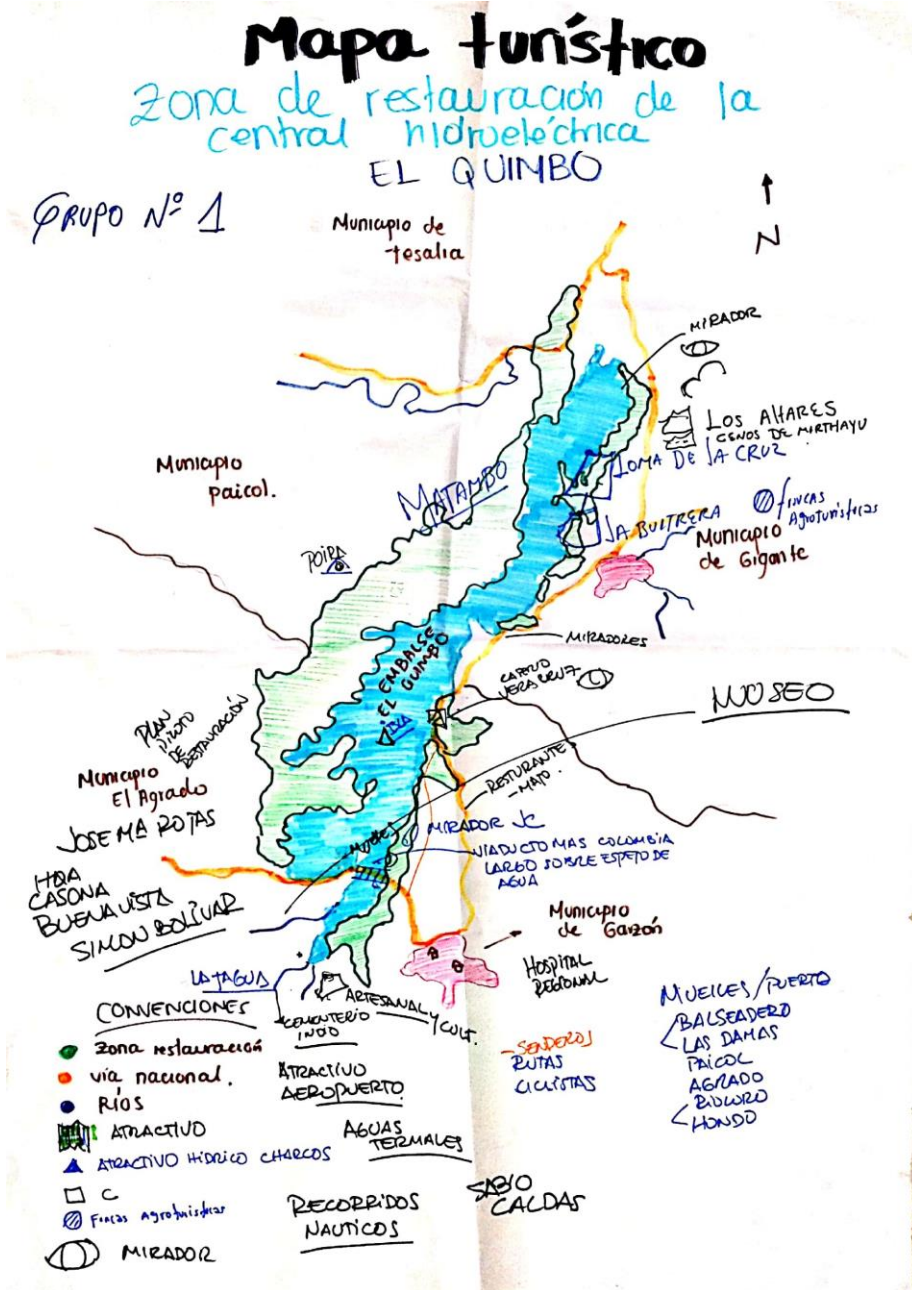 Mapa turístico
Zona de restauración de la
central hidroeléctrica
EL QUIMBO
GRUPO Nº 1
Municipio de
tesalia
N
MIRADOR
LOS ALTARES
CENOS DE MIRTHAYU
LOMA DE LA CRUZ
Municipio
paicol.
MATAMBO
LA BUITRERA
fincas
Agroturisticas
Municipio
de Gigante
POIRA
MIRADORES
EMBALSE
EL QUIMBO
ISLA
CASERIO
VERACRUZ
MUSEO
PLAN
PILOTO
DE
RESTAURACIÓN
Municipio
El Agrado
RESTURANTE
-MAJO.
JOSE MA ROJAS
MIRADOR JC
VIADUCTO MAS COLOMBIA
LARGO SOBRE ESPEJO DE
AGUA
HDA
CASONA
BUENAVISTA
SIMON BOLÍVAR
Municipio
de Garzón
HOSPITAL
REGIONAL
LA JAGUA
ARTESANAL Y CULT.
CEMENTERIO
INDIO
CONVENCIONES
zona restauración
vía nacional.
RÍOS
ATRACTIVO
ATRACTIVO HÍDRICO CHARCOS
C
Fincas Agroturisticas
MIRADOR
ATRACTIVO
AEROPUERTO
AGUAS
TERMALES
RECORRIDOS
NAUTICOS
-SENDEROS
RUTAS
CICLISTAS
SABIO
CALDAS
MUELLES/PUERTO
BALSEADERO
LAS DAMAS
PAICOL
AGRADO
RIOLORO
HONDO